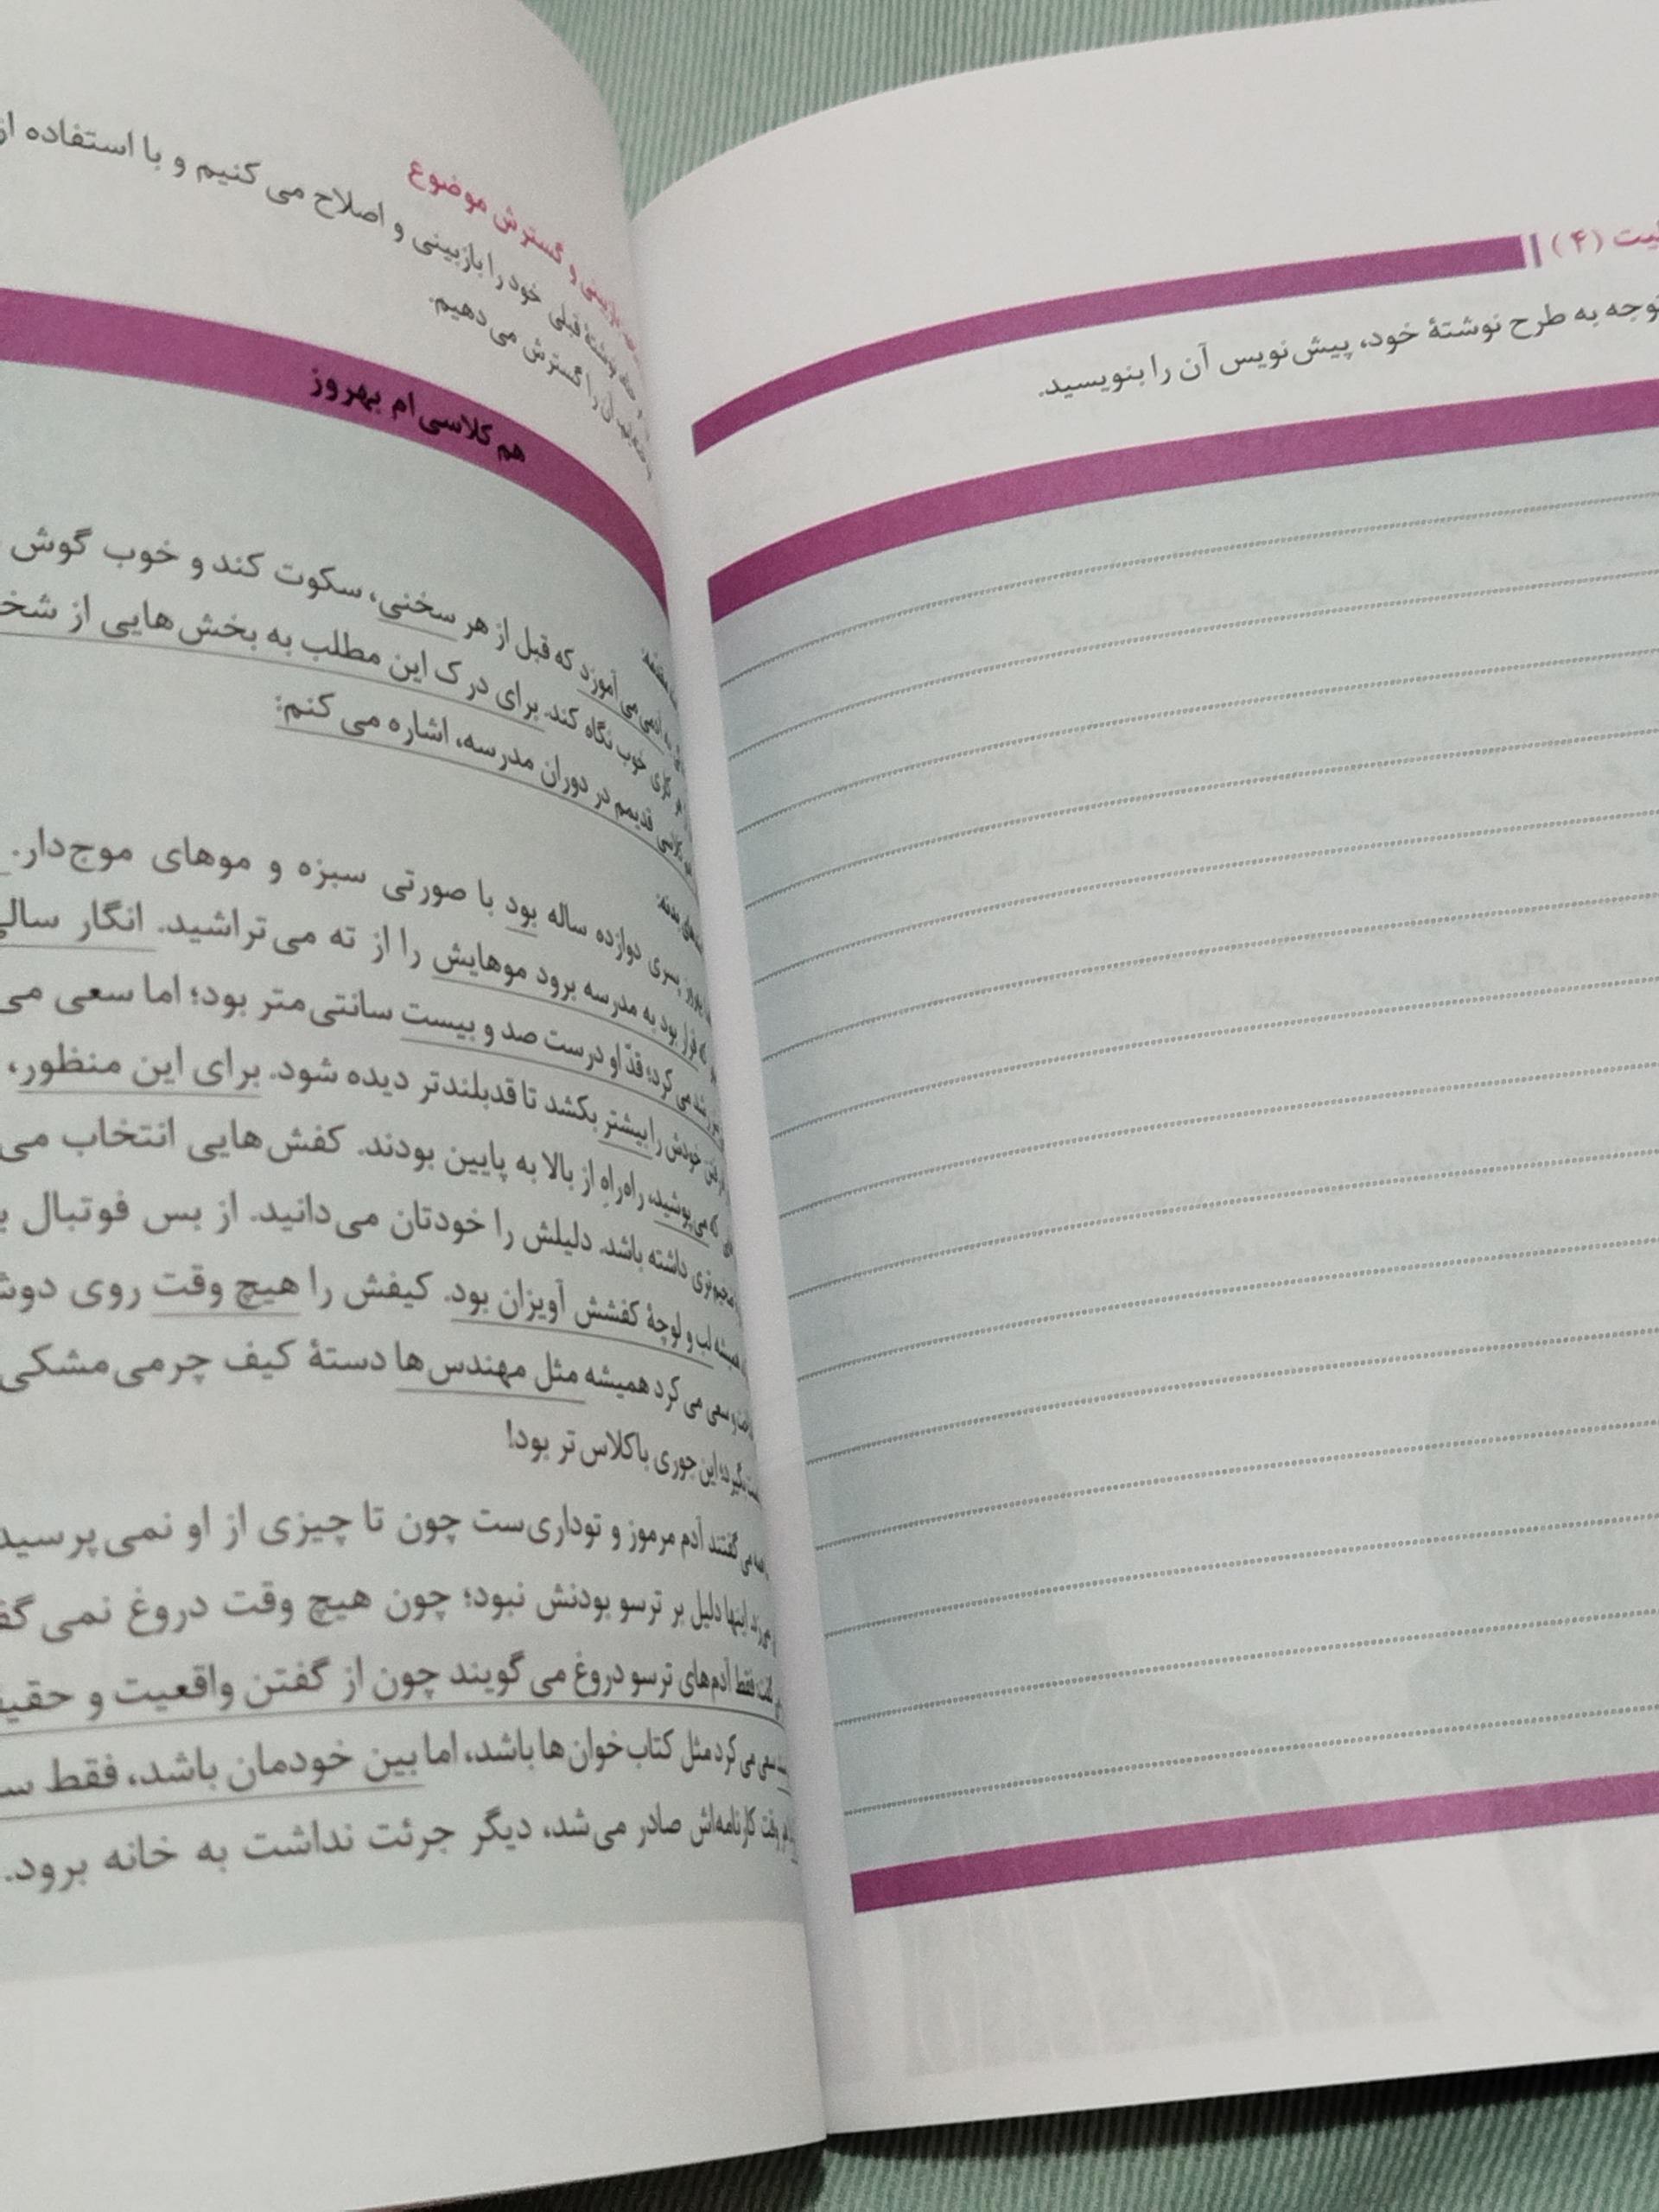 (۴)
توجه به طرح نوشتهٔ خود، پیش‌نویس آن را بنویسید.
و گسترش موضوع
نوشتهٔ قبلی خود را بازبینی و اصلاح می‌کنیم و با استفاده از
آن را گسترش می‌دهیم.
هم‌کلاسی‌ام بهروز
آدمی می‌آموزد که قبل از هر سخنی، سکوت کند و خوب گوش
کاری خوب نگاه کند. برای درک این مطلب به بخش‌هایی از
قدیمم در دوران مدرسه، اشاره می‌کنم:
پسری دوازده ساله بود با صورتی سبزه و موهای موج‌دار.
قرار بود به مدرسه برود موهایش را از ته می‌تراشید. انگار
می‌کرد؛ قدّ او درست صد و بیست سانتی‌متر بود؛ اما سعی می
خودش را بیشتر بکشد تا قدبلندتر دیده شود. برای این منظور،
که می‌پوشید، راه‌راهِ از بالا به پایین بودند. کفش‌هایی انتخاب می
داشته باشد. دلیلش را خودتان می‌دانید. از بس فوتبال
همیشه لب و لوچهٔ کفشش آویزان بود. کیفش را هیچ وقت روی
و سعی می‌کرد همیشه مثل مهندس‌ها دستهٔ کیف چرمی مشکی
این جوری باکلاس‌تر بود!
می‌گفتند آدم مرموز و توداری‌ست چون تا چیزی از او نمی‌پرسید
اینها دلیل بر ترسو بودنش نبود؛ چون هیچ وقت دروغ نمی
فقط آدم‌های ترسو دروغ می‌گویند چون از گفتن واقعیت و
سعی می‌کرد مثل کتاب‌خوان‌ها باشد، اما بین خودمان باشد، فقط
وقت کارنامه‌اش صادر می‌شد، دیگر جرئت نداشت به خانه برود.